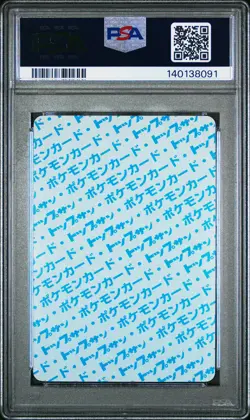 PSA
140138091
ポケモンカード・トップサン
トップサン・ポケモンカード
ポケモンカード・トップサン
トップサン・ポケモンカード
ポケモンカード・トップサン
トップサン・ポケモンカード
ポケモンカード・トップサン
トップサン・ポケモンカード
PSA